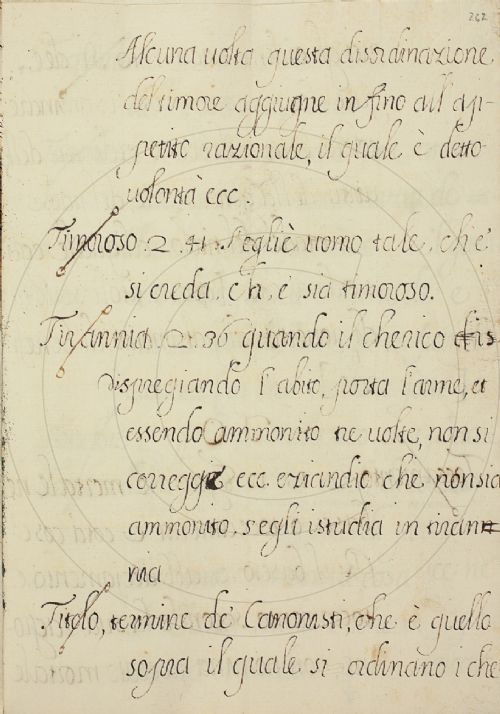 262
Alcuna volta questa disordinazione
del timore aggiugne in fino all ap-
petito razionale, il quale è detto
volontà ecc.
Timoroso. 2. 41. S'egli è uomo tale, ch e
si creda, ch, e sia timoroso.
Tirannia. 2. 36 quando il cherico dis
dispregiando l'abito, porta l'arme, et
essendo ammonito tre volte, non si
corregge ecc. eziandio che non sia
ammonito, s'egli istudia in tiran=
nia
Titolo, termine de' Canonisti, che è quello
sopra il quale si ordinano i che